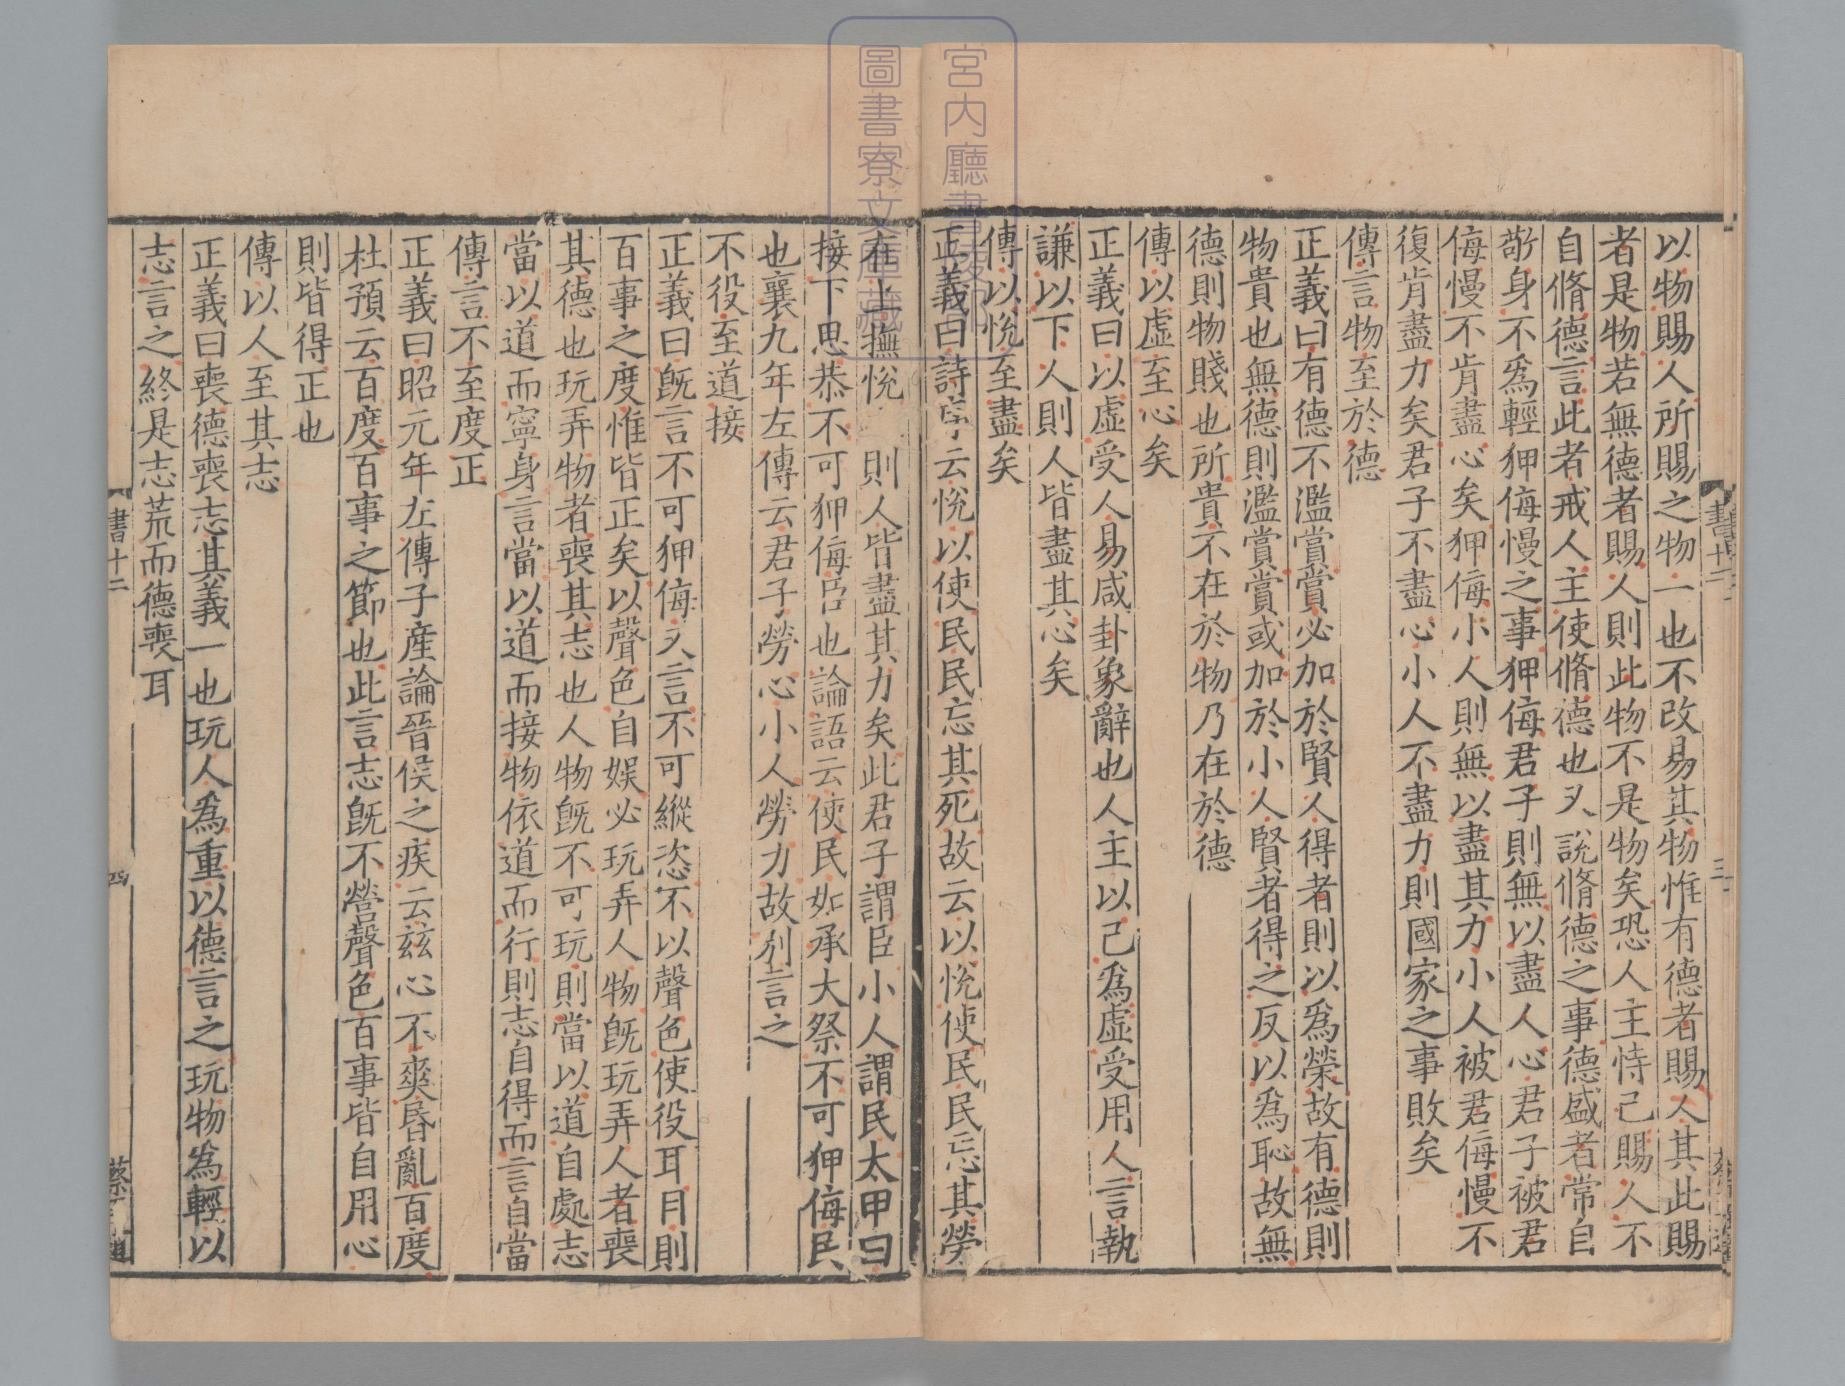 以物賜人所賜之物一也不改易其物惟有德者賜人其此賜
者是物若無德者賜人則此物不是物矣恐人主恃己賜人不
自脩德言此者戒人主使脩德也又說脩德之事德盛者常自
敬身不爲輕狎侮慢之事狎侮君子則無以盡人心君子被君
侮慢不肯盡心矣狎侮小人則無以盡其力小人被君侮慢不
復肯盡力矣君子不盡心小人不盡力則國家之事敗矣
傳言物至於德
正義曰有德不濫賞賞必加於賢人得者則以爲榮故有德則
物貴也無德則濫賞賞或加於小人賢者得之反以爲恥故無
德則物賤也所貴不在於物乃在於德
傳以虛至心矣
正義曰以虛受人易咸卦象辭也人主以己爲虛受用人言執
謙以下人則人皆盡其心矣
傳以悅至盡矣
正義曰詩序云悅以使民民忘其死故云以悅使民民忘其勞
在上撫悅 則人皆盡其力矣此君子謂臣小人謂民太甲曰
接下思恭不可狎侮臣也論語云使民如承大祭不可狎侮民
也襄九年左傳云君子勞心小人勞力故別言之
不役至道接
正義曰旣言不可狎侮又言不可縱恣不以聲色使役耳目則
百事之度惟皆正矣以聲色自娛必玩弄人物旣玩弄人者喪
其德也玩弄物者喪其志也人物旣不可玩則當以道自處志
當以道而寧身言當以道而接物依道而行則志自得而言自當
傳言不至度正
正義曰昭元年左傳子產論晉侯之疾云茲心不爽昬亂百度
杜預云百度百事之節也此言志旣不營聲色百事皆自用心
則皆得正也
傳以人至其志
正義曰喪德喪志其義一也玩人爲重以德言之玩物爲輕以
志言之終是志荒而德喪耳
書十二
三
書十二
四
宮内廳書陵部
圖書寮文庫藏